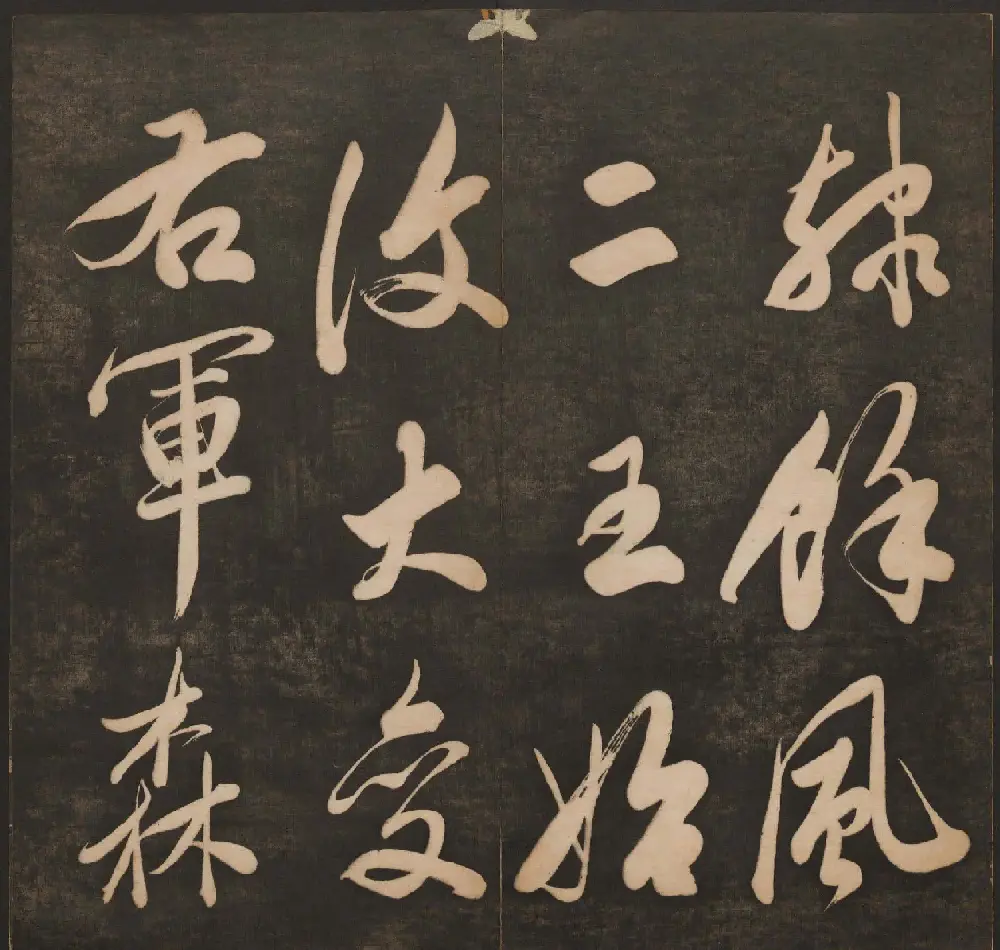 隸餘風
二王始
復大變
右軍森